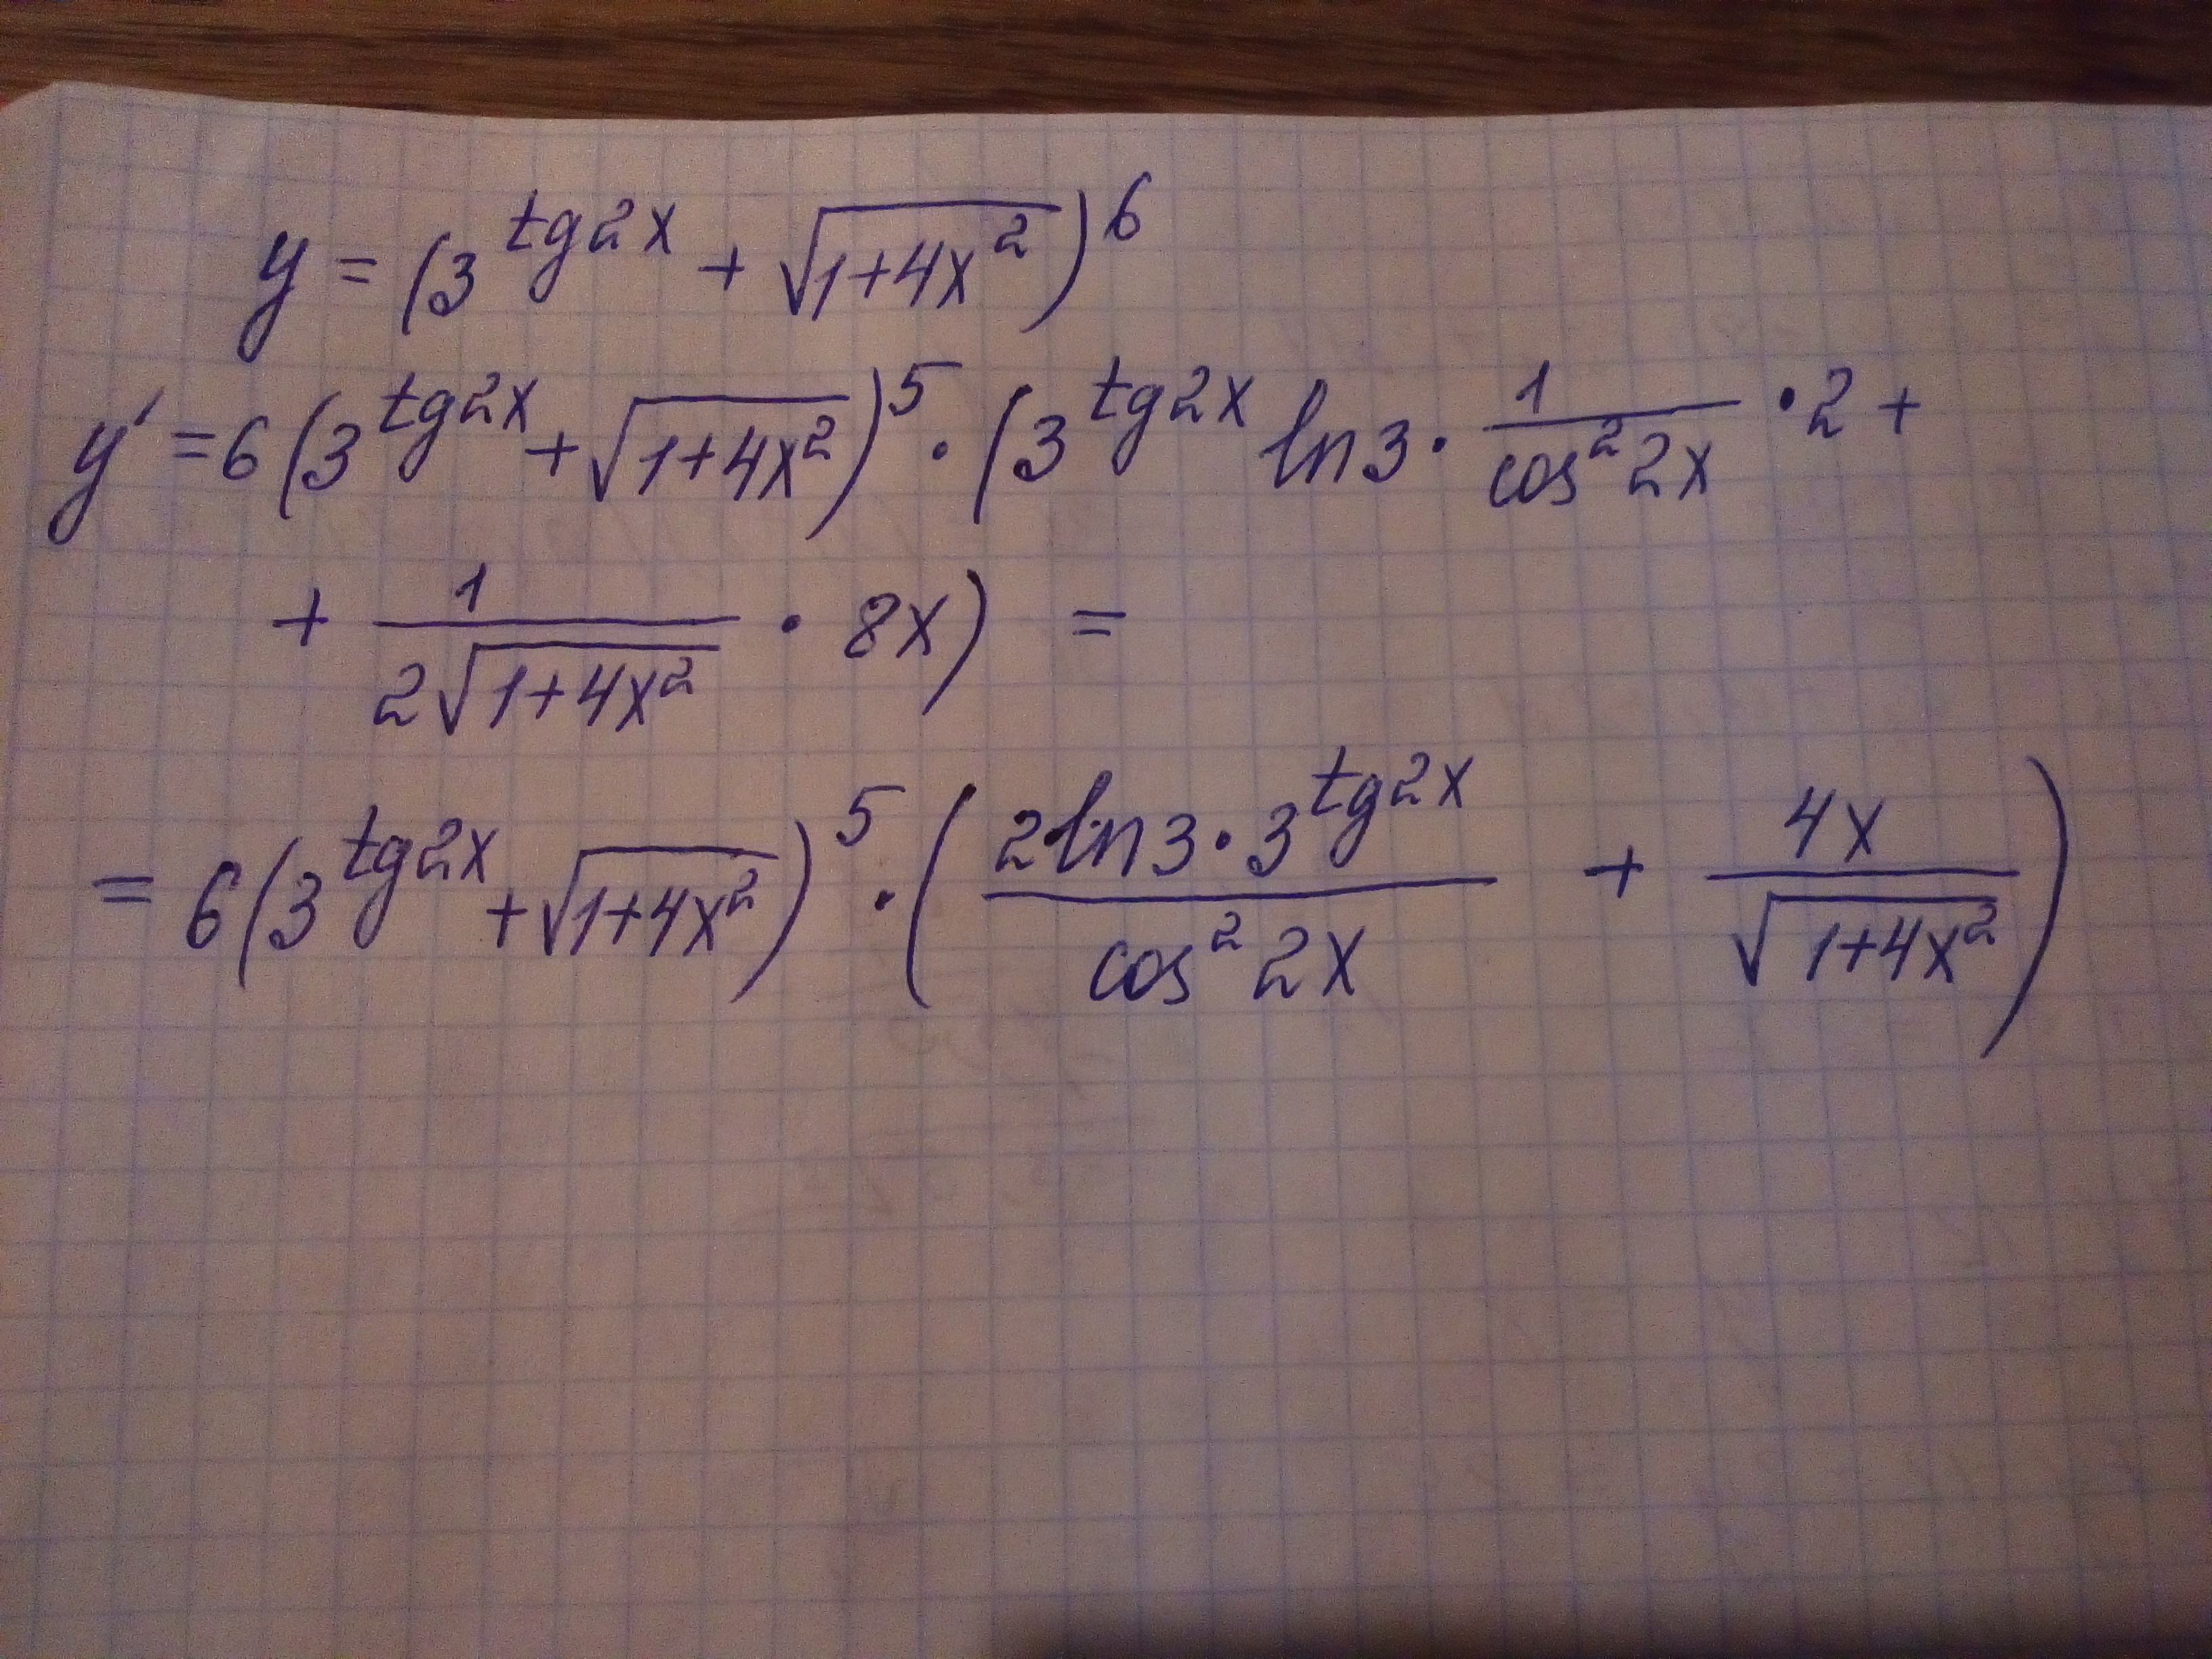 y = (3^{tg2x} + √(1+4x²))^6
y' = 6(3^{tg2x} + √(1+4x²))^5 · (3^{tg2x} ln3 · \frac{1}{cos² 2x} · 2 +
+ \frac{1}{2√(1+4x²)} · 8x) =
= 6(3^{tg2x} + √(1+4x²))^5 · (\frac{2·ln3·3^{tg2x}}{cos² 2x} + \frac{4x}{√(1+4x²)})